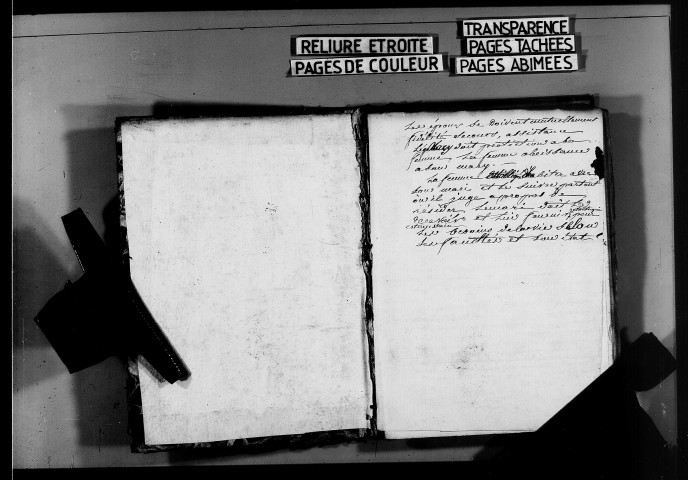 RELIURE ETROITE
PAGES DE COULEUR
TRANSPARENCE
PAGES TACHEES
PAGES ABIMEES
Les épous se doivent mutuellement
fidélité secours, assistance
Le mary doit protection a la
femme, La femme obeissance
a son mary.
La femme habiter avec
son mari et le suivre partout
ou il juge apropos de
résider Le mari doit
la recevoir et lui fournir pour
les besoins de la vie Selon
ses facultés et son état